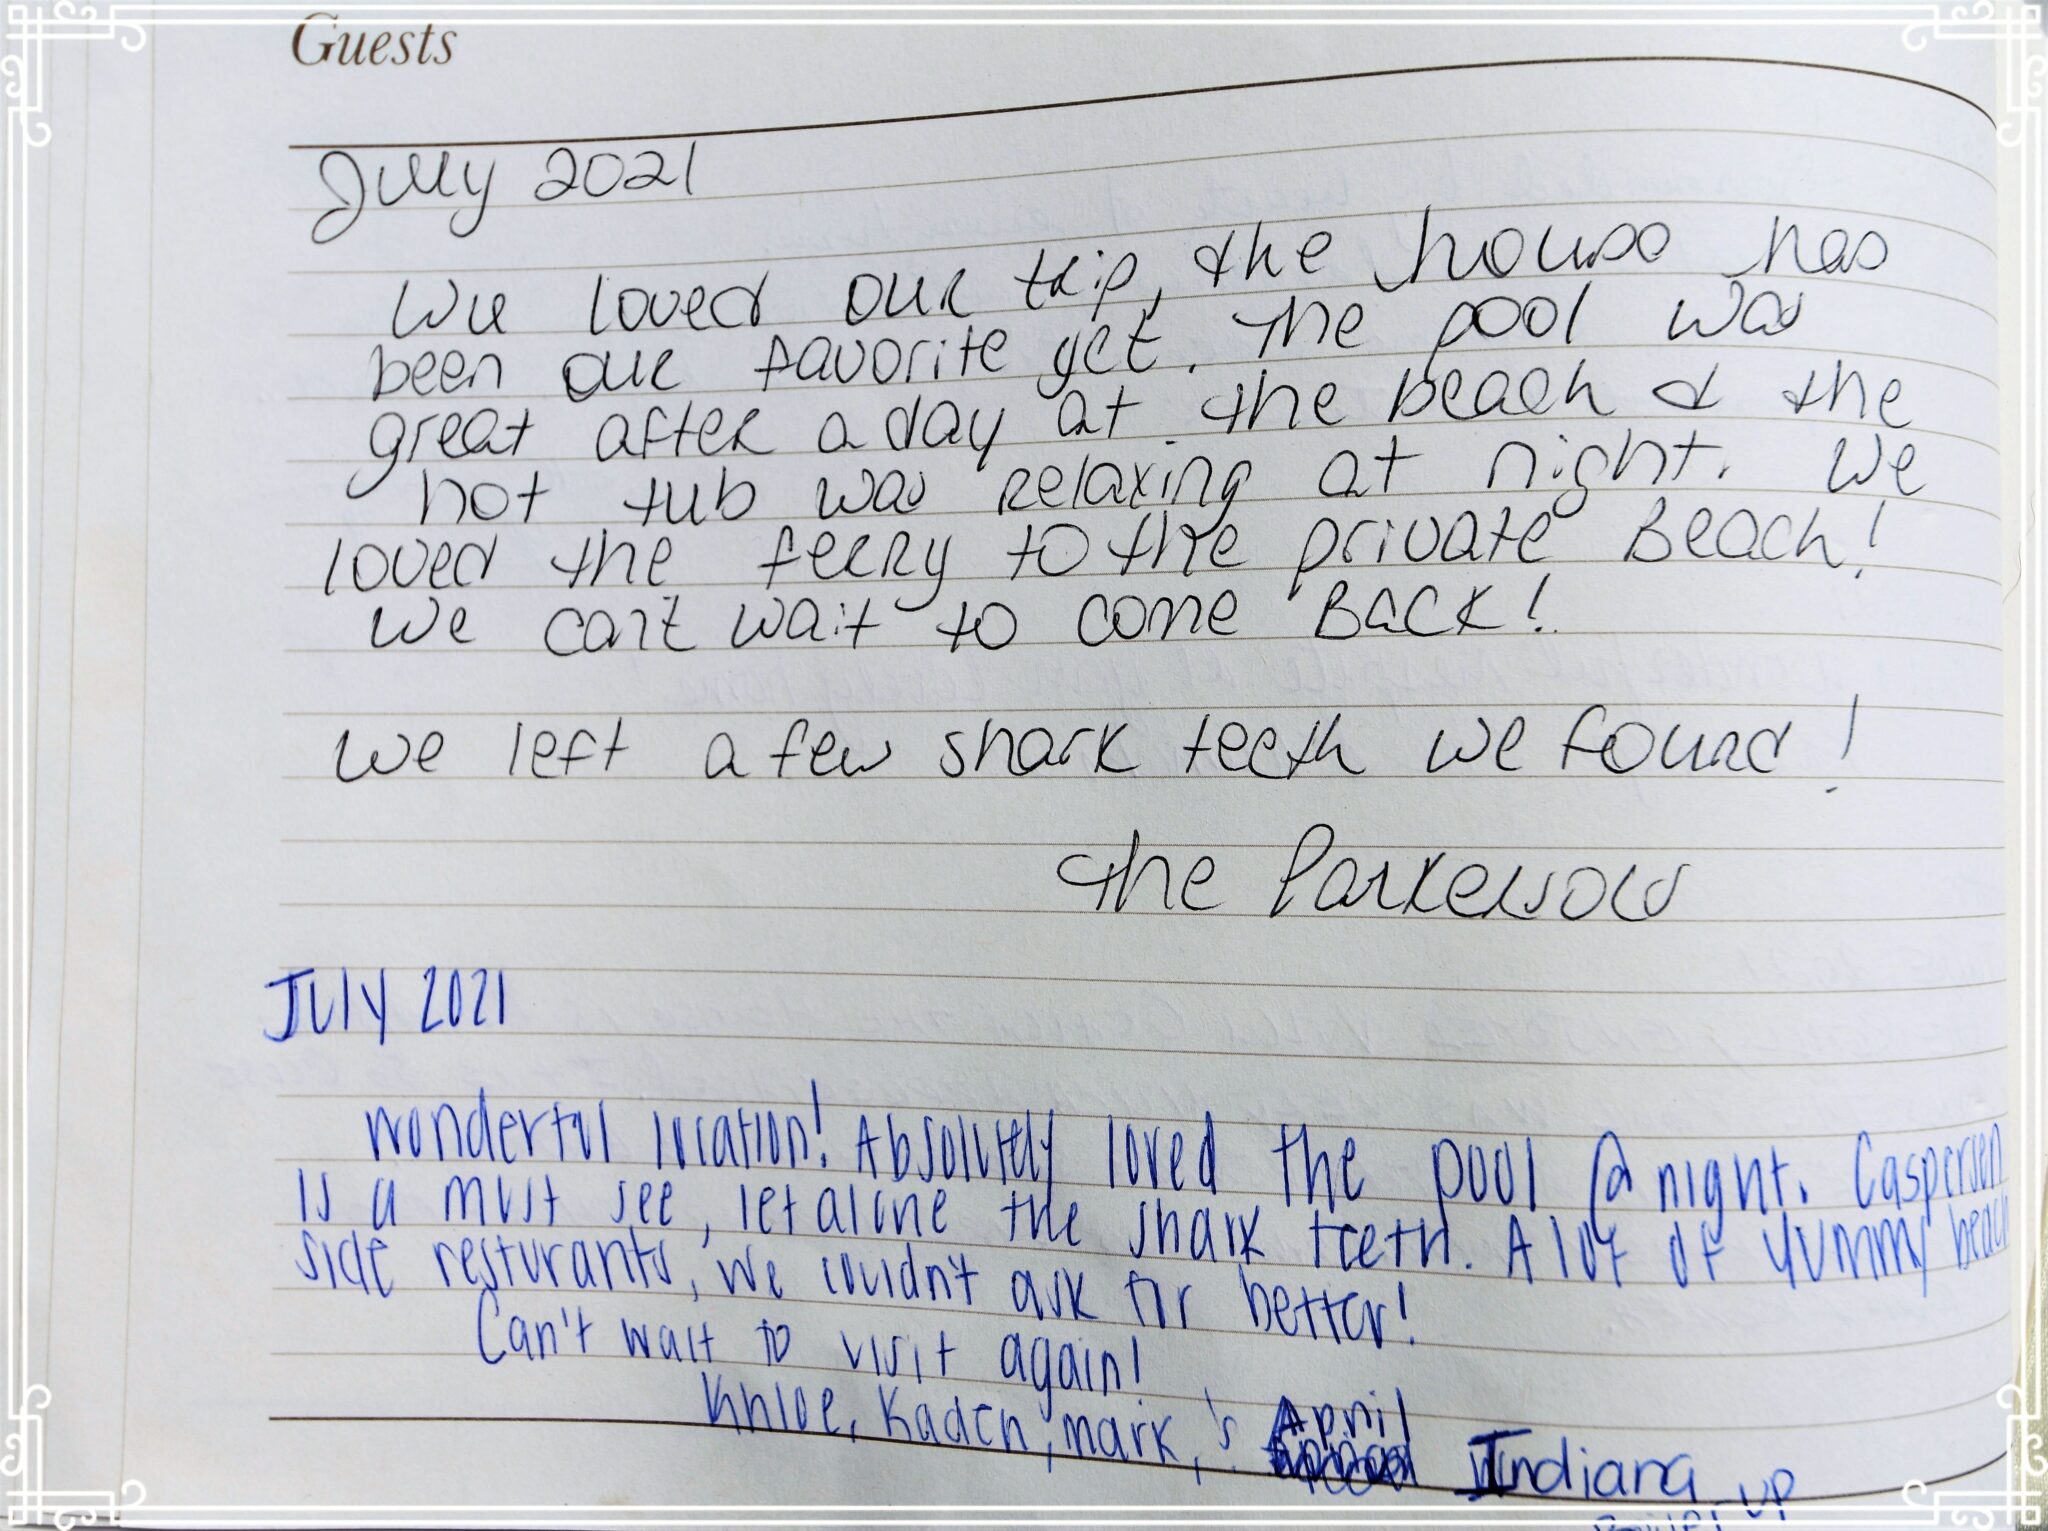 Guests
July 2021
We loved our trip, the house has
been our favorite yet. The pool was
great after a day at the beach & the
hot tub was relaxing at night. We
loved the ferry to the private Beach!
We can't wait to come BACK!
We left a few shark teeth we found!
The Parkersons
July 2021
Wonderful location! Absolutely loved the pool @ night. Caspersen
is a must see, let alone the shark teeth. A lot of yummy beach
side resturants, we couldn't ask for better!
Can't wait to visit again!
Khloe, Kaden, mark, April
Indiana
UP